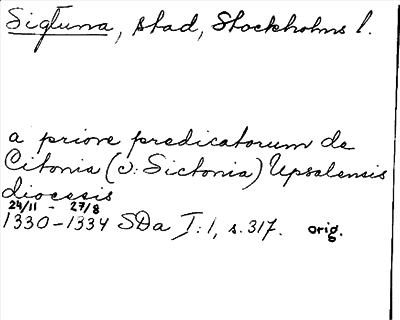 Sigtuna, stad, Stockholms l.
a priore predicatorum de
Citonia (ɔ: Sictonia) Upsalensis
diocesis
24/11 - 27/8
1330-1334 SDa I:1, s. 317. orig.